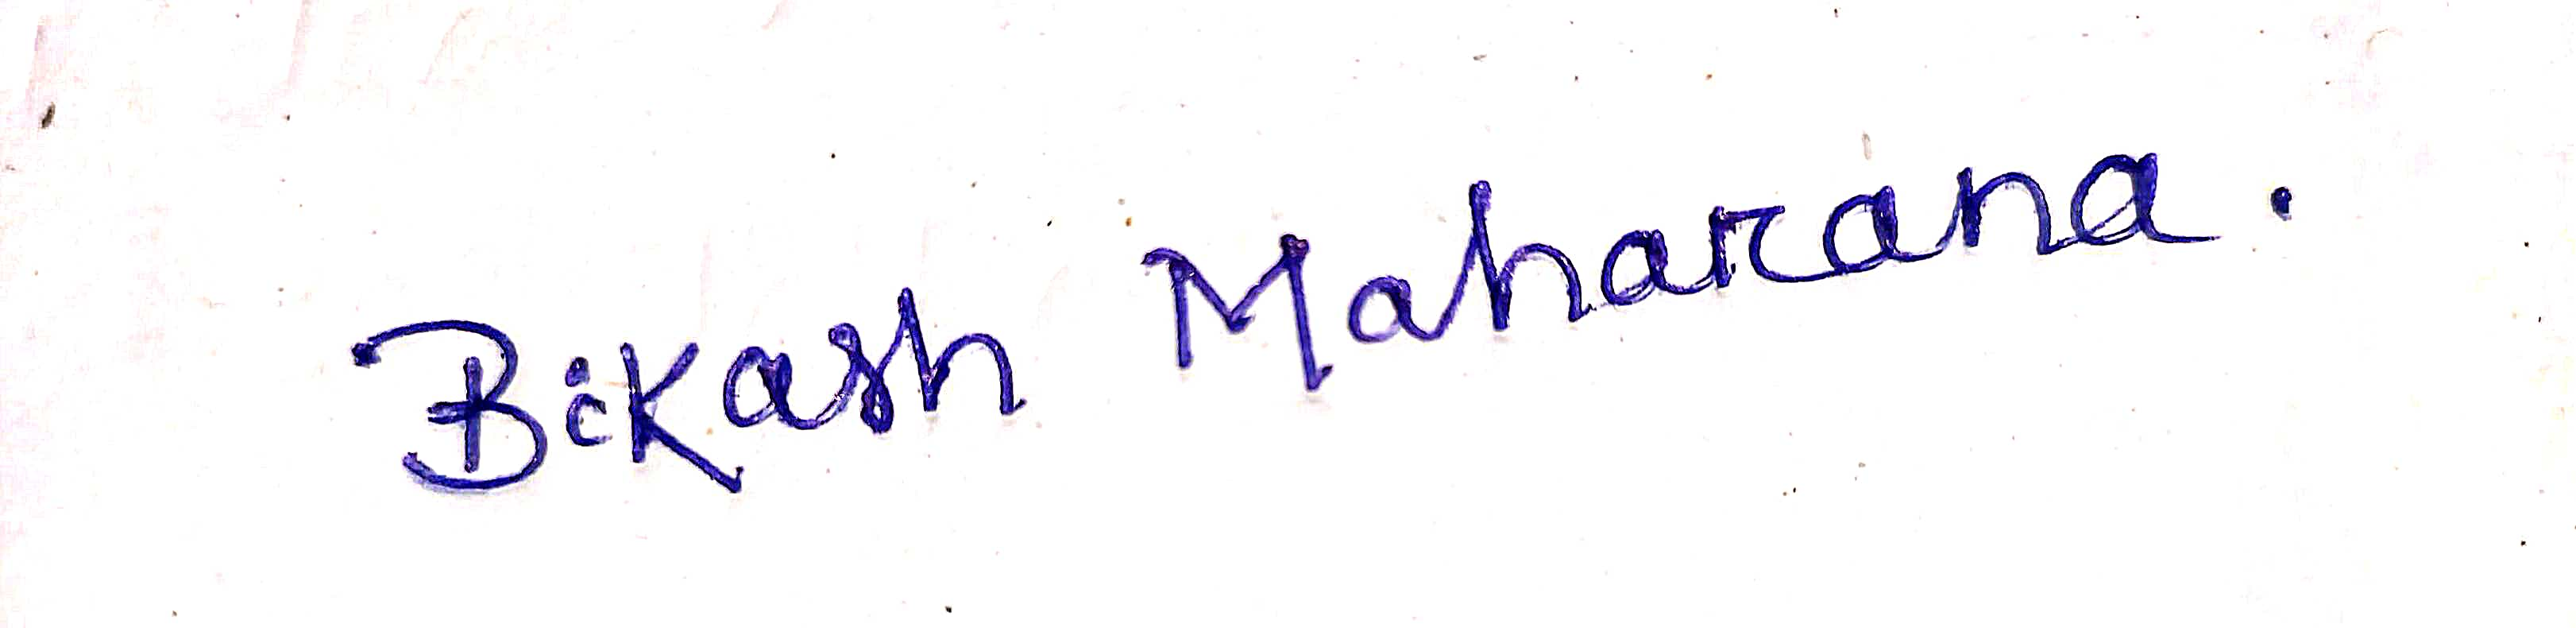 Bikash Maharana.